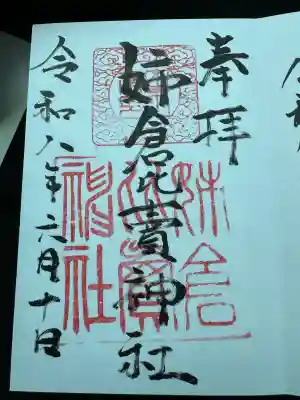 奉拝
姉倉比賣神社
姉倉
比賣
神社
令和八年六月十日